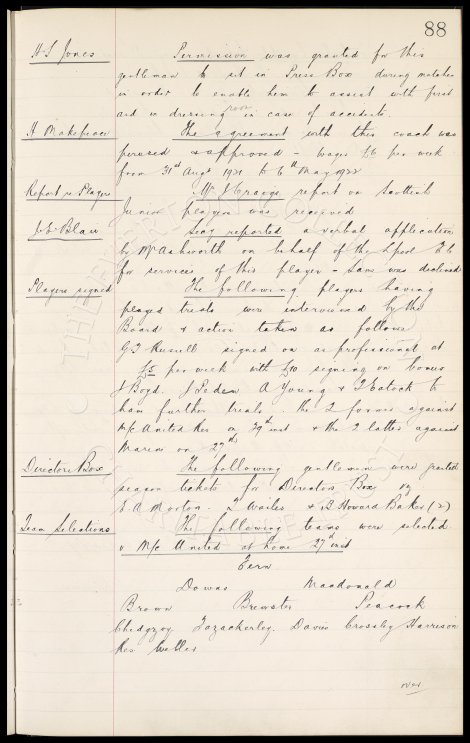 88
H S Jones Permission was granted for this
gentleman to sit in Press Box during matches
in order to enable him to assist with first
aid in dressing room in case of accidents.
H Makepeace The agreement with this coach was
perused & approved - wages £6 per week
from 31st Augt 1921 to 6th May 1922
Report re Players Mr J Craggs report on Scottish
Junior players was received
J S Blair Secy reported a verbal application
by Mr Ashworth on behalf of the Lpool F C
for services of this player - Same was declined
Players signed The following players having
played trials were interviewed by the
Board & action taken as follows
G T Russell signed on as professional at
£5 per week with £10 signing on bonus
J Boyd. J Peden A Young & T Eatock to
have further trials. the 2 former against
M/c United Res on 29th inst & the 2 latter against
Marine on 27th
Directors Box The following gentlemen were granted
season tickets for Directors Box viz
E A Morton. T Wailes & B Howard Baker (2)
Team Selections The following teams were selected
v M/c United at home 27th inst
Fern
Downs Macdonald
Brown Brewster Peacock
Chedgzoy Fazackerley. Davies Crossley Harrison
Res Weller
over